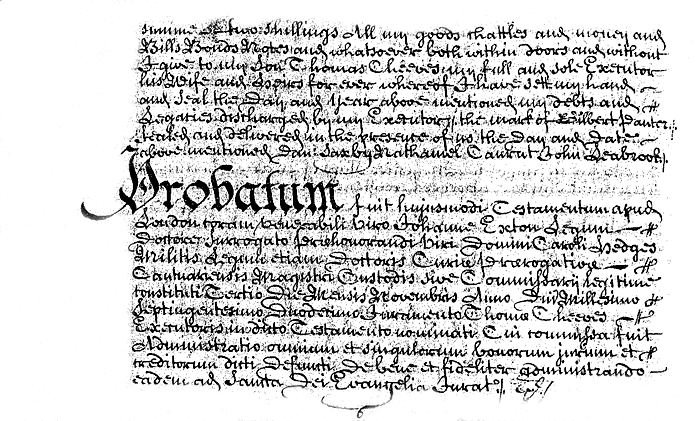 summe of two shillings All my goods chattles and money and
Bills Bonds Notes and whatsoever both within doors and without
I give to my Son Thomas Cleeves my full and sole Executor
his Wife and Heyrs for ever whereof I have sett my hand
and seal the Day and Year above mentioned my debts and
Legacies discharged by my Executor the mark of
sealed and delivered in the presence of us the Day and Date
above mentioned Dan: Nathaniel John Seabrook
Probatum fuit hujusmodi Testamentum apud
London coram venerabili Viro Johanne Exton Legum
Doctore Surrogato prehonorandi Viri Domini Caroli Hedges
Militis Legum etiam Doctoris Curiæ Prærogativæ
Cantuariensis Magistri Custodis sive Commissarij legitime
constituti Tertio Die Mensis Novembris Anno Dni Millesimo
Septingentesimo Duodecimo Juramento Thomæ Cleeves
Executoris in dicto Testamento nominati Cui commissa fuit
Administratio omnium et singulorum bonorum jurium et
creditorum dicti defuncti De bene et fideliter administrando
eadem ad Sancta Dei Evangelia Jurat. Ex.
6